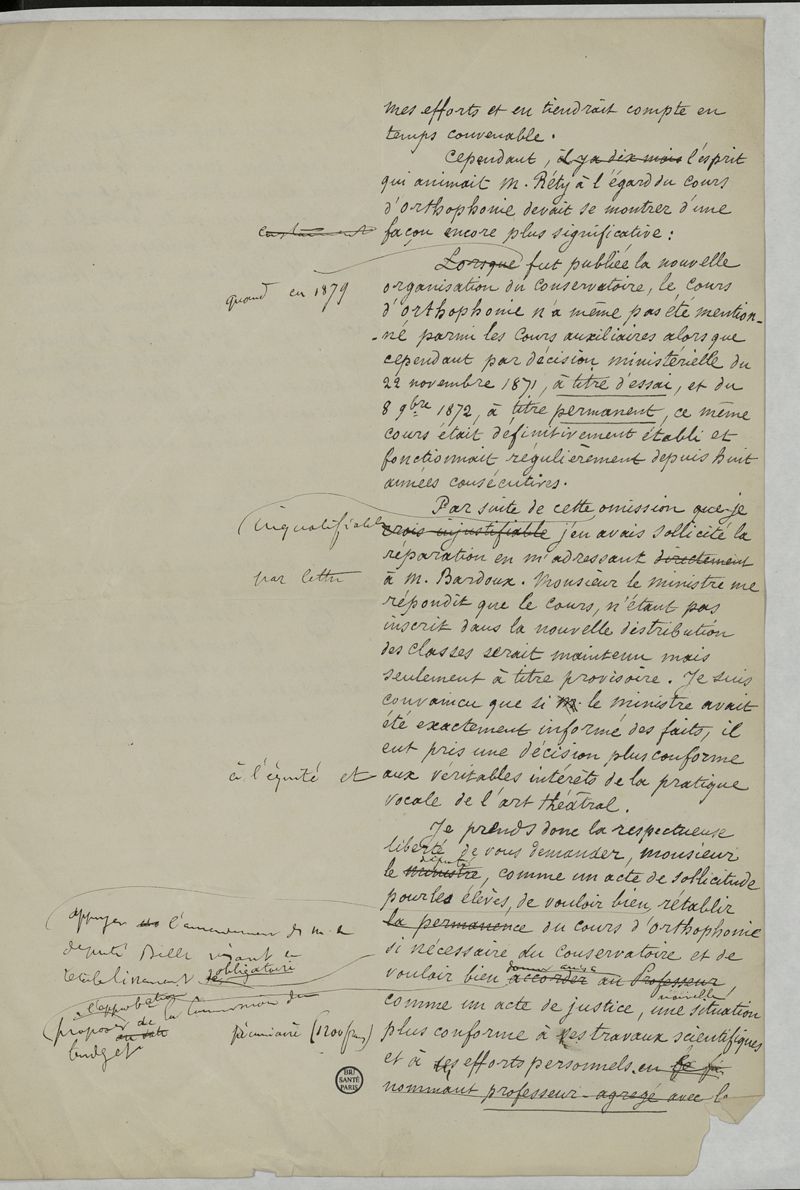 mes efforts et en tiendrait compte en
temps convenable.
Cependant, il y a dix mois l'esprit
qui animait M. Réty à l'égard du cours
d'Orthophonie devait se montrer d'une
façon encore plus significative :
quand en 1879
Lorsque fut publiée la nouvelle
organisation du conservatoire, le cours
d'Orthophonie n'a même pas été mention-
-né parmi les cours auxiliaires alors que
cependant par décision ministérielle du
22 novembre 1871, à titre d'essai, et du
8 9bre 1872, à titre permanent, ce même
cours était définitivement établi et
fonctionnait régulièrement depuis huit
années consécutives.
Par suite de cette omission que je
inqualifiable
crois injustifiable j'en avais sollicité la
réparation en m'adressant directement
par lettre
à M. Bardoux. Monsieur le ministre me
répondit que le cours, n'étant pas
inscrit dans la nouvelle distribution
des classes serait maintenu mais
seulement à titre provisoire. Je suis
convaincu que si M. le ministre avait
été exactement informé des faits, il
eut pris une décision plus conforme
à l'équité et
aux véritables intérêts de la pratique
vocale de l'art théâtral.
Je prends donc la respectueuse
liberté de vous demander, monsieur
député
le ministre, comme un acte de sollicitude
pour les élèves, de vouloir bien, rétablir
la permanence du cours d'Orthophonie
si nécessaire du conservatoire et de
donner aussi
vouloir bien accorder au Professeur,
nouvelle
comme un acte de justice, une situation
plus conforme à ses travaux scientifiques
et à ses efforts personnels en
nommant professeur-agrégé avec le
appuyer l'amendement de M. le
député Bille visant
rétablissement obligatoire
à l'approbation
proposer de la commission du
budget
pécuniaire (1200 frs)
BIU
SANTÉ
PARIS